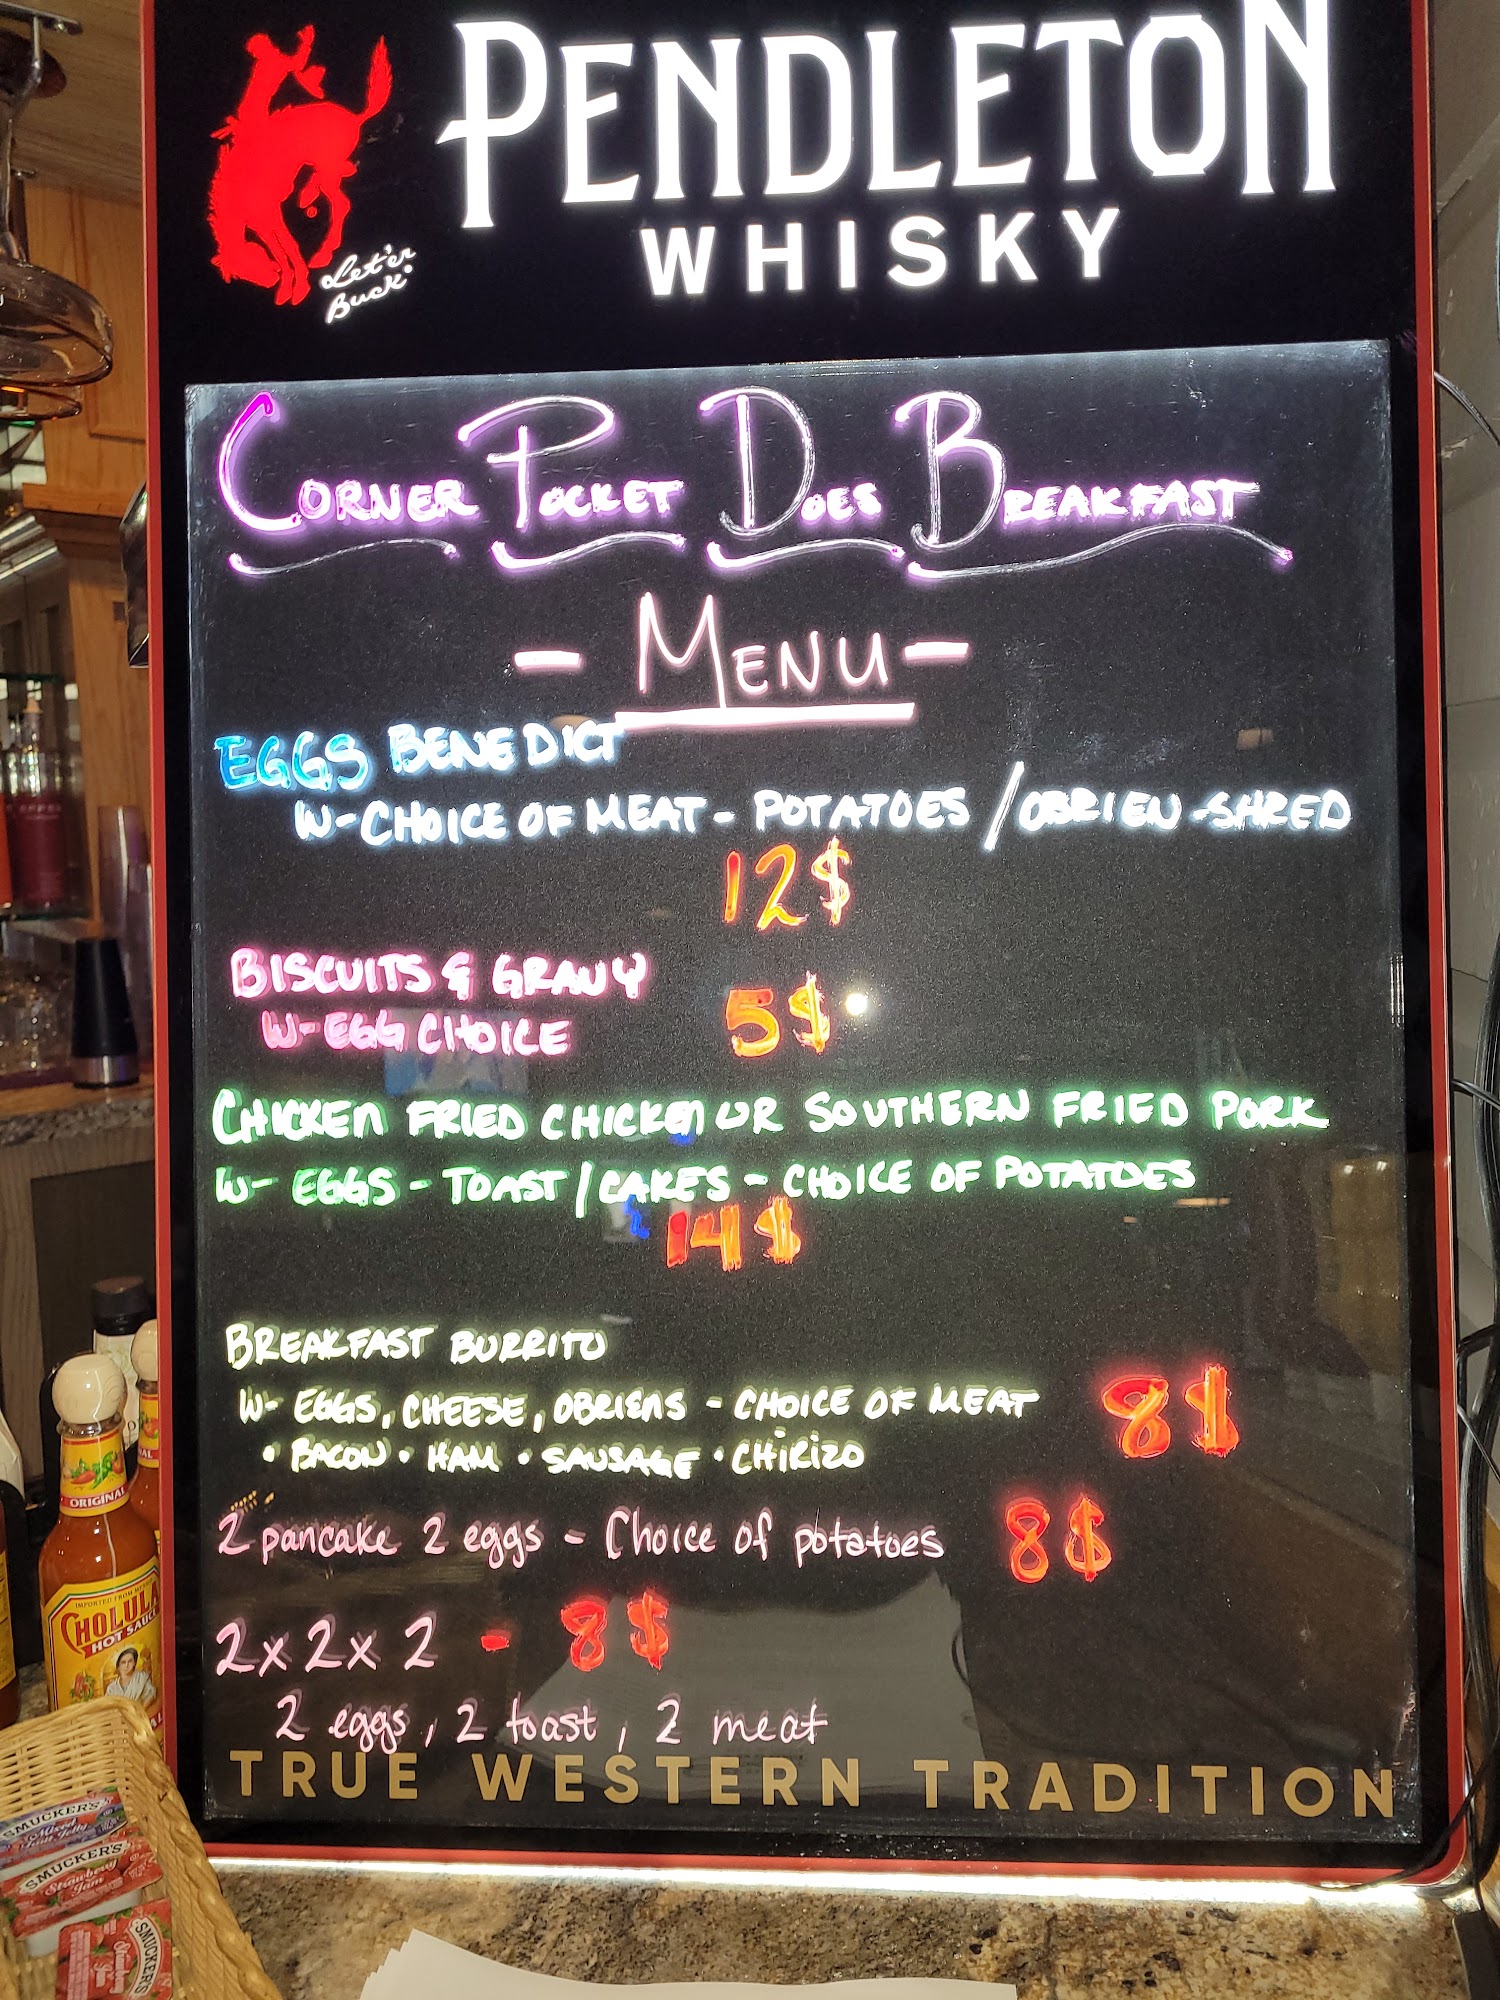 PENDLETON
WHISKY
Let'er
Buck
CORNER POCKET DOES BREAKFAST
- MENU -
EGGS BENEDICT
W-CHOICE OF MEAT - POTATOES / OBRIEN -SHRED
12$
BISCUITS & GRAVY
W-EGG CHOICE
5$
CHICKEN FRIED CHICKEN OR SOUTHERN FRIED PORK
W- EGGS - TOAST / CAKES - CHOICE OF POTATOES
14$
BREAKFAST BURRITO
W- EGGS, CHEESE, OBRIENS - CHOICE OF MEAT
8$
• BACON • HAM • SAUSAGE • CHIRIZO
2 pancake 2 eggs - Choice of potatoes 8$
2x2x2 - 8$
2 eggs, 2 toast, 2 meat
TRUE WESTERN TRADITION
ORIGINAL
IMPORTED FROM
CHOLULA
HOT SAUCE
SMUCKER'S
SMUCKER'S
Strawberry
Jam
SMUCKER'S
Strawberry
Jam